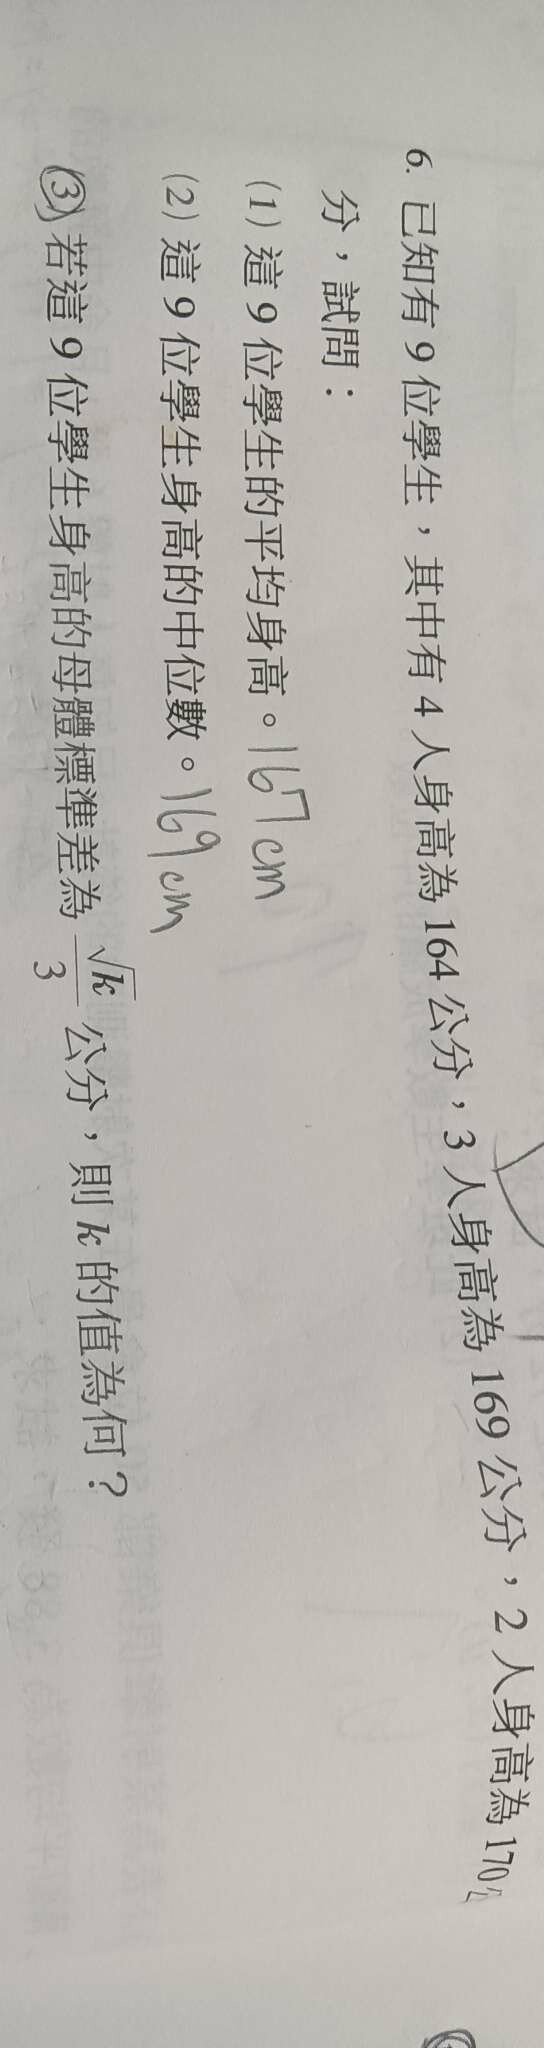 6. 已知有 9 位學生，其中有 4 人身高為 164 公分，3 人身高為 169 公分，2 人身高為 170公
分，試問：
(1) 這 9 位學生的平均身高。167cm
(2) 這 9 位學生身高的中位數。169cm
(3) 若這 9 位學生身高的母體標準差為 √k/3 公分，則 k 的值為何？